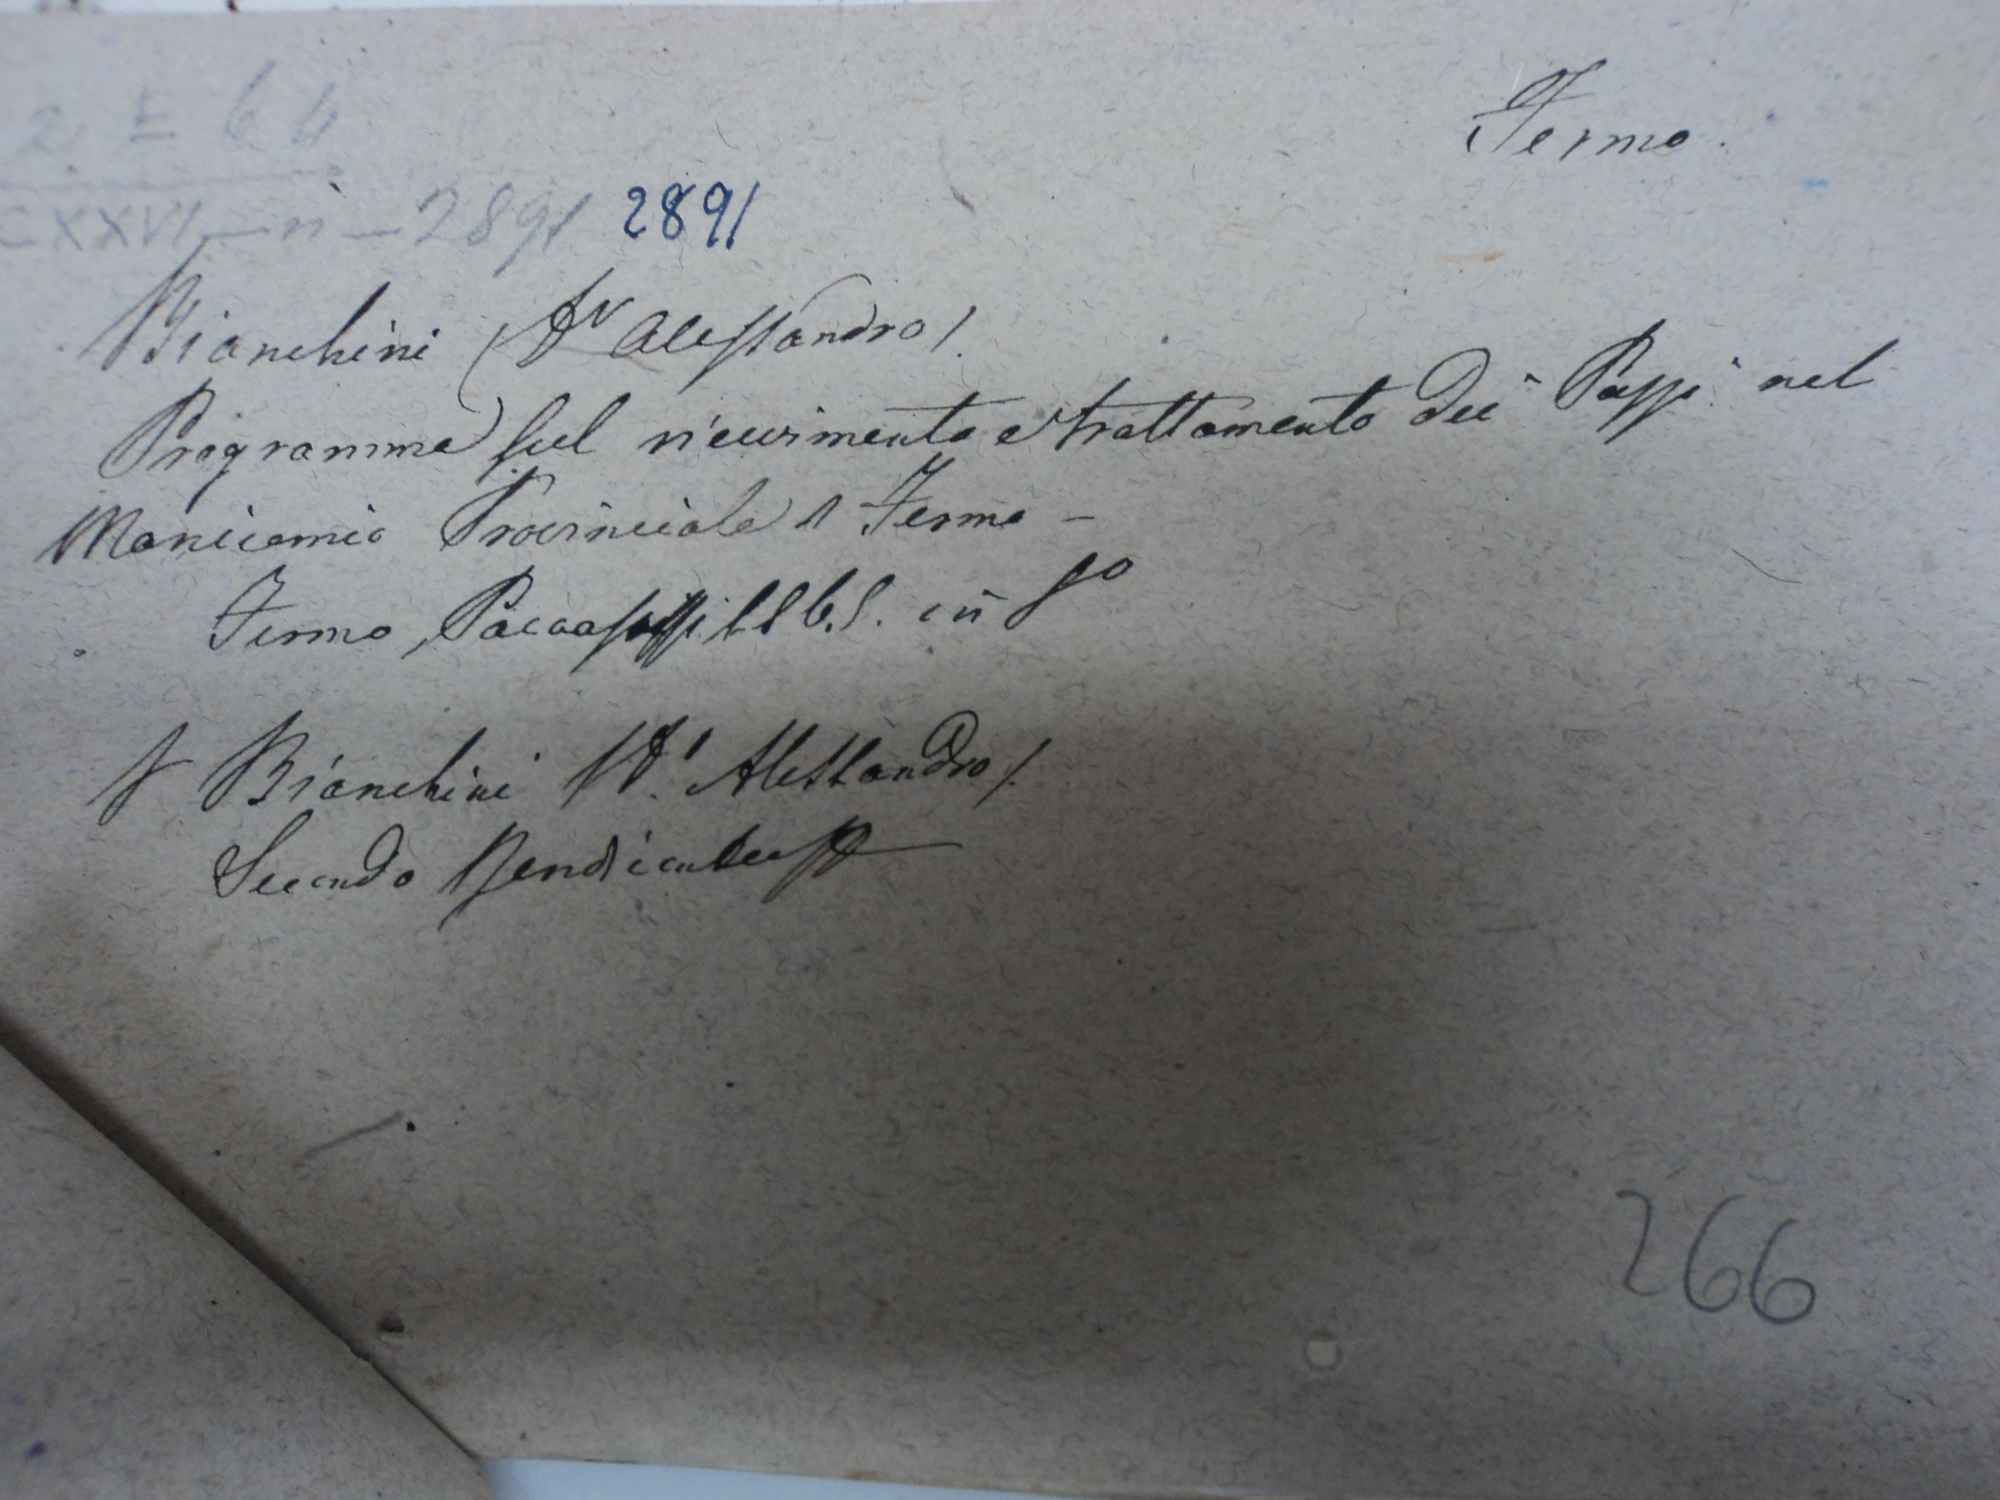 Fermo.
2 = 64
CXXVI - n - 2891 2891
Bianchini (Dr Alessandro).
Programma sul ricevimento e trattamento dei Pazzi nel
Manicomio Provinciale di Fermo -
Fermo, in 8º
Bianchini (Dr Alessandro).
Secondo
266